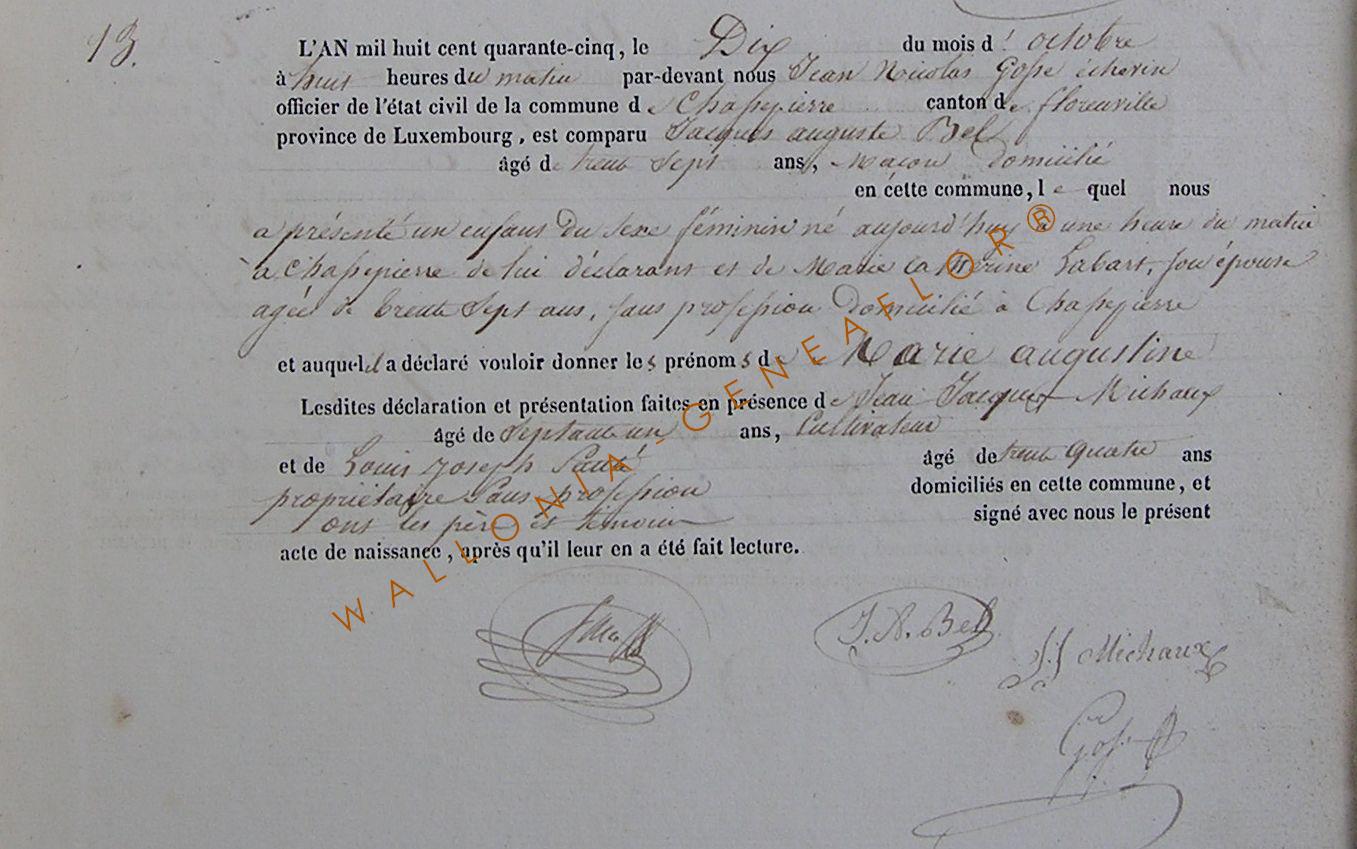 13.
L'AN mil huit cent quarante-cinq, le Dix du mois d' octobre
à huit heures du matin par-devant nous Jean Nicolas Gosse échevin
officier de l'état civil de la commune de Chassepierre canton de florenville
province de Luxembourg, est comparu Jacques auguste Bel
âgé de trente Sept ans, Maçon domicilié
en cette commune, le quel nous
a présenté un enfant du sexe féminin né aujourd'huy à une heure du matin
à Chassepierre de lui déclarant et de Marie Catherine Labart, son épouse
agée de trente Sept ans, sans profession domicilié à Chassepierre
et auquel il a déclaré vouloir donner les prénoms de Marie augustine
Lesdites déclaration et présentation faites en présence de Jean Jacques Michaux
âgé de Septante un ans, Cultivateur
et de Louis Joseph âgé de trente Quatre ans
propriétaire Sans profession domiciliés en cette commune, et
ont les père et témoins signé avec nous le présent
acte de naissance, après qu'il leur en a été fait lecture.
J. A. Bel
J. J Michaux
WALLONIA - GENEAFLOR ®